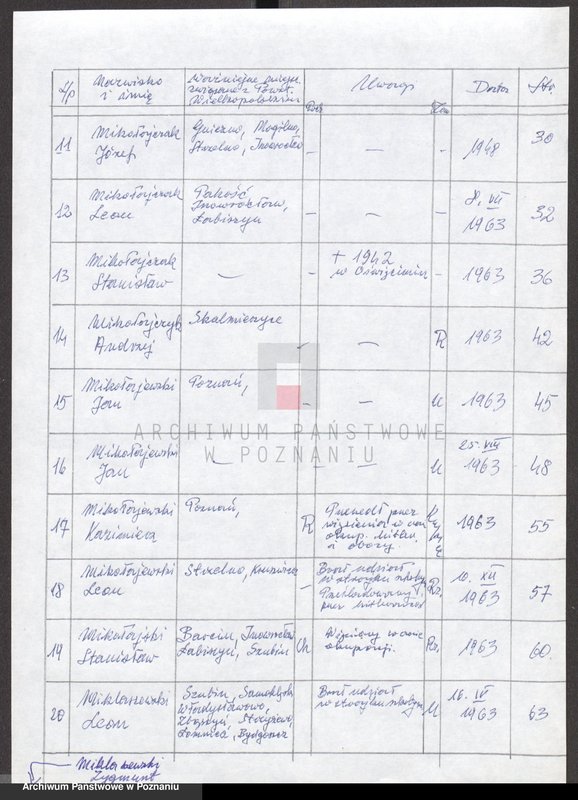 L/p Nazwisko i imię Uwagi Data Str
związane z Powst. Wielkopolskim
11 Mikołajczak Józef Gniezno, Mogilno, Strzelno, Inowrocław - - - 1948 30
12 Mikołajczak Leon Pakość, Inowrocław, Łabiszyn - - - 8. VII 1963 32
13 Mikołajczak Stanisław - - + 1942 w Oświęcimiu - 1963 36
14 Mikołajczyk Andrzej Skalmierzyce - - R 1963 42
15 Mikołajewski Jan Poznań, - - U 1963 45
16 Mikołajewski Jan - - - U 25. VIII 1963 48
17 Mikołajewski Kazimierz Poznań, R Przeszedł przez więzienia w czas okup. hitler. i obozy. 1963 55
18 Mikołajewski Leon Strzelno, Kruszwica - Brał udział w strajku szkolnym Prześladowany przez hitlerowców Rz. 10. XII 1963 57
19 Stanisław Barcin, Inowrocław Łabiszyn, Szubin Ch Więziony w czasie okupacji. Rz. 1963 60.
20 Miklaszewski Leon Szubin, Władysławowo, Zbąszyń, Łomnica, Bydgoszcz Brał udział w strajku szkolnym U 16. IV 1963 63
Miklaszewski
Zygmunt
ARCHIWUM PAŃSTWOWE
W POZNANIU
Archiwum Państwowe w Poznaniu